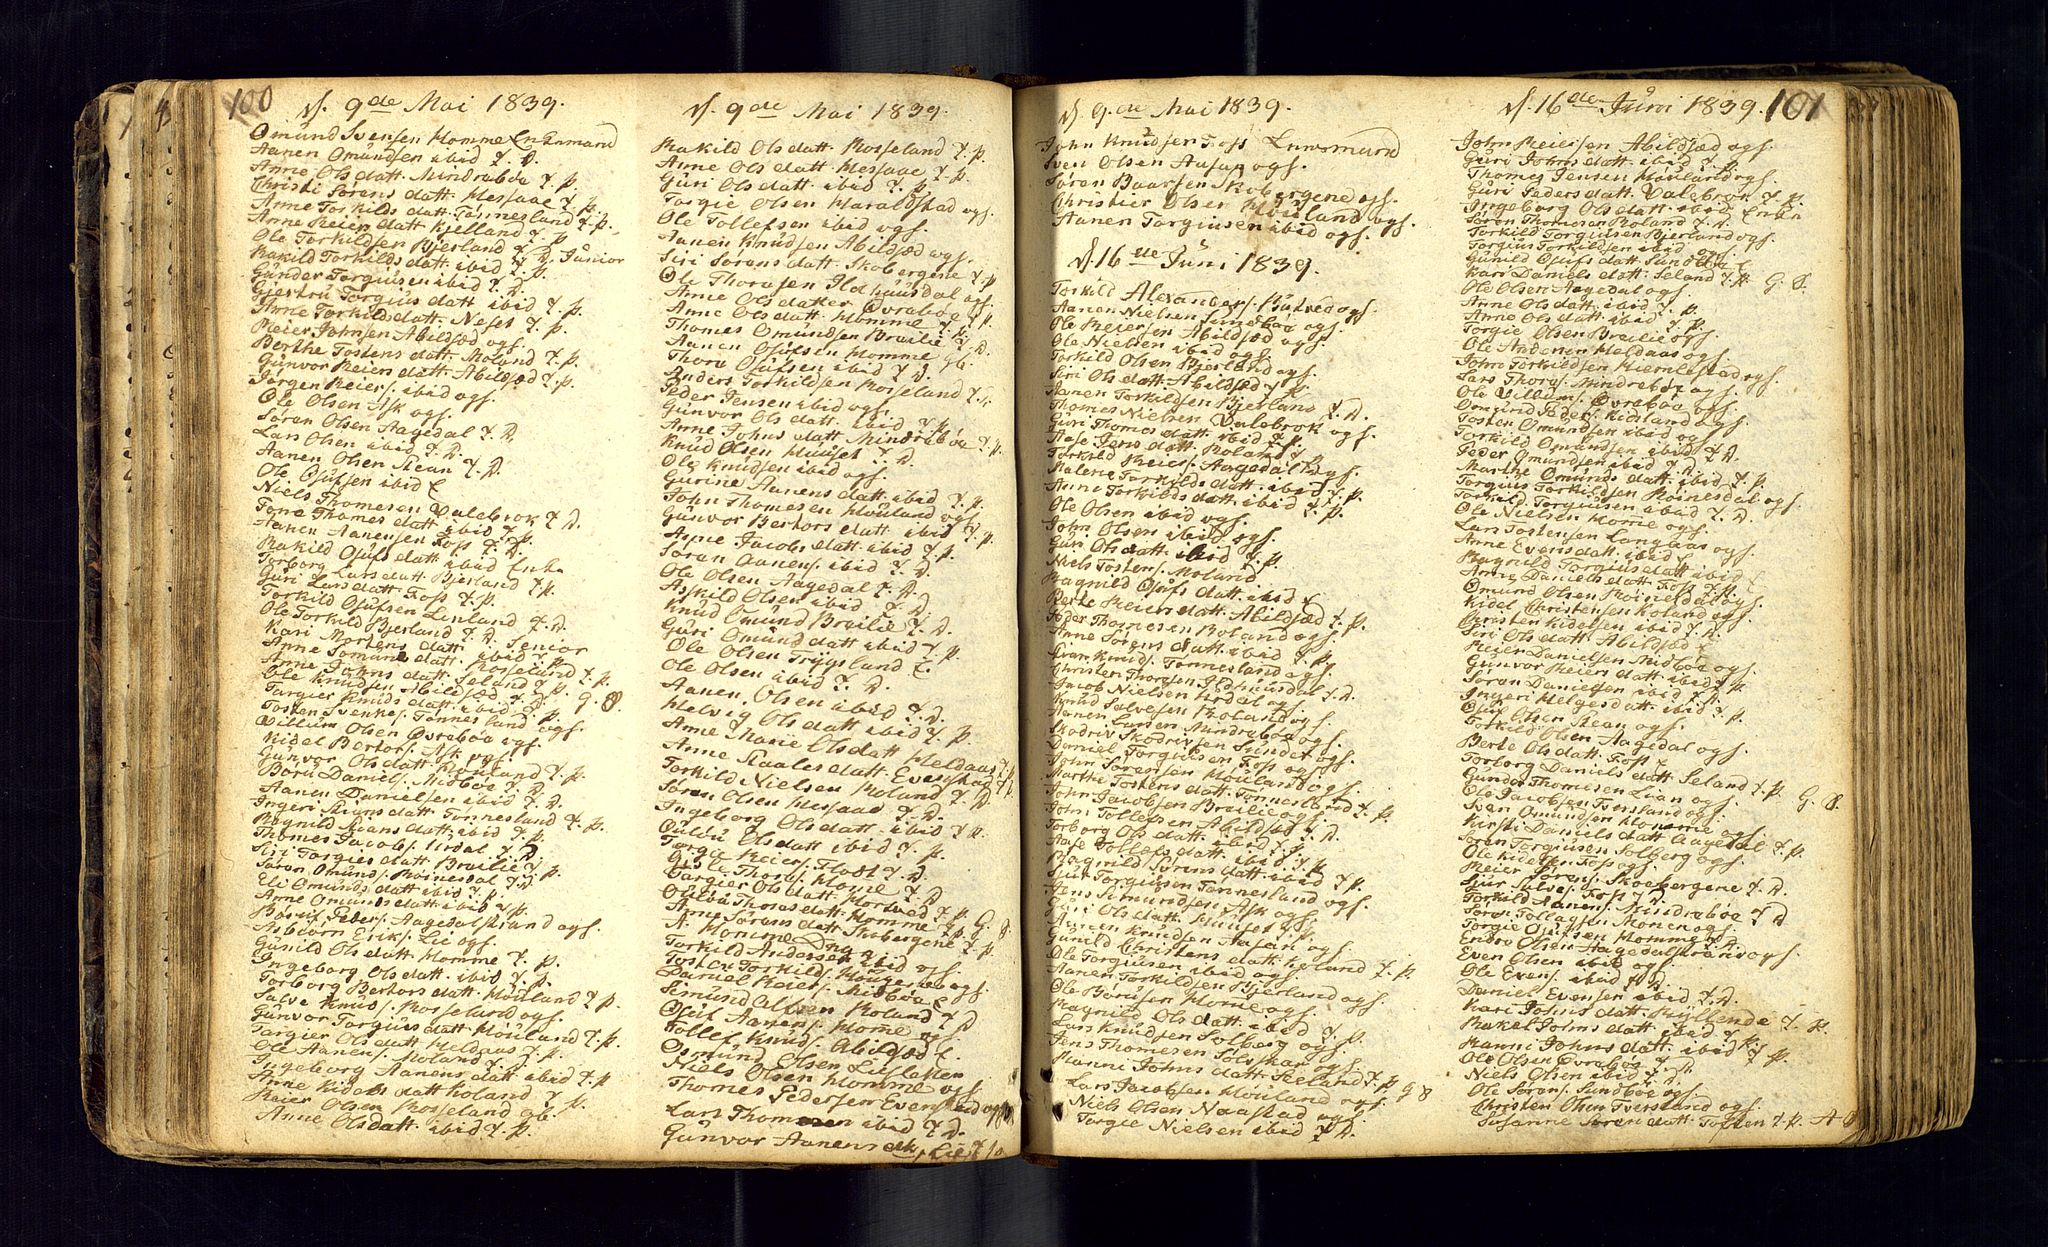 100
d. 9de Mai 1839.
Omund Svensen Homme Enkemand
Aanen Omundsen ibid T. D.
Anne Ols datt. Mindrebøe T. P.
Christi Sørens datt Messaae T. P.
Anne Torkilds datt Tønnesland T. P.
Anne Reiers datt Kjelland T. P.
Ole Torkildsen Bjerland T. D. Junior
Rakild Torkilds datt. ibid T. P.
Gunder Torgiusen ibid T. D.
Gjertru Torgius datt ibid T. P.
Anne Torkilds datt. Neset T. P.
Reier Johnsen Abildsæd ogs.
Berthe Tostens datt. Moland T. P.
Gunvor Reiers datt. Abildsæd T. P.
Jørgen Reiers. ibid ogs.
Ole Olsen Ask ogs.
Søren Olsen Aagedal T. D.
Lars Olsen ibid T. D.
Aanen Olsen Rean T. D.
Ole Osufsen ibid
Niels Thomesen Valebrok T. D.
Tone Thomes datt ibid T. P.
Aanen Aanensen Foss T. D.
Rakild Osufs datt ibid Enke
Torborg Lars datt Bjerland T. P.
Guri Lars datt. Foss T. P.
Torkild Osufsen Lenland T. D.
Ole Torkild Bjerland T. D. Senior
Kari Mortens datt. ibid T. P.
Anne Tomunes datt. Rosseland T. P.
Anne Johns datt. Seland T. P. G. S.
Ole Knudsen Abildsæd T. D.
Targier Knuds datt ibid T. P.
Tosten Svenkes. Tønnesland ogs.
Villum Olsen Øvrebøe ogs.
Kidel Bertors. Ask ogs.
Gunvor Ols datt. Røiland T. P.
Børu Daniels. Midbøe T. D.
Aanen Danielsen ibid T. D.
Ingeri Stians datt Tønnesland T. P.
Ragnild Evans datt. ibid T. P.
Thomes Jacobs. Urdal T. D.
Siri Torgies datt Brailie T. P.
Søren Omunds. Roinesdal T. D.
Eli Omunds datt ibid T. P.
Anne Omunds datt. ibid T. P.
Børuf Peders. Aagedalstrand ogs.
Asbiorn Eriks. Lie ogs.
Gunild Ols datt. Homme T. P.
Ingeborg Ols datt. ibid T. P.
Torborg Bertors datt. Houland T. P.
Salve Knuds. Rosseland ogs.
Gunvor Torgius datt. Houland T. P.
Targier Ols datt Heldaas T. P.
Ole Aanens. Moland T. D.
Ingeborg Aanens datt ibid T. P.
Anne Kidels datt Roland T. P.
Reier Olsen Rosseland ogs.
Anne Ols datt. ibid T. P.
d. 9de Mai 1839.
Rakild Ols datt. Rosseland T. P.
Anne Ols datt Messaae T. P.
Guri Ols datt. ibid T. P.
Torgie Olsen Haraldstad ogs.
Ole Tollefsen ibid ogs.
Aanen Knudsen Abildsæd ogs.
Siri Sørens datt. Skobergene T. P.
Ole Thorsen Ildhuusdal ogs.
Anne Ols datter Øvrebøe T. P.
Anne Ols datt. Homme T. P.
Thomes Omundsen Brailie T. D.
Aanen Osufsen Homme G6.
Thore Osufsen ibid T. D.
Anders Torkildsen Rosseland T. D.
Peder Jensen ibid ogs.
Gunvor Ols datt. ibid T. P.
Anne Johns datt Mindrebøe T. P.
Knud Olsen Huuset T. D.
Ole Knudsen ibid ogs.
Gurine Aanens datt. ibid T. P.
John Thomesen Houland ogs.
Gunvor Bertors datt. ibid T. P.
Anne Jacobs datt. ibid T. P.
Søren Aanens. ibid T. D.
Ole Olsen Aagedal T. D.
Askild Olsen ibid T. D.
Knud Omund Brailie T. D.
Guri Omund datt ibid T. P.
Ole Olsen Trygsland
Ole Olsen ibid T. D.
Aanen Olsen ibid T. D.
Helvig Ols datt ibid T. P.
Anne Marie Ols datt Heldaas T. P.
Anne Staales datt Evenstad T. P.
Torkild Nielsen Roland T. D.
Søren Olsen Messaae T. D.
Ingeborg Ols datt. ibid T. P.
Oulou Ols datt ibid T. P.
Torgie Reiers. Flodt T. D.
Gitle Thors. Home T. D.
Targier Ols datt. Hortved T. P. G. S.
Oulou Thores datt Homme T. P.
Anne Sørens datt. Skobergene T. P.
N. Homme Dna
Torkild Andersen ibid ogs.
Tosten Torkilds. Houseberg ogs.
Daniel Reiers. Midbøe
Simund Olsen Roland T. D.
Oluf Aanens. Home ogs.
Tollef Knuds. Abildsæd
Osmund Olsen Lislelien
Niels Olsen Homme ogs.
Thomes Pedersen Evenstad ogs.
Lars Thomesen ibid T. D.
Gunvor Aanens dtt. Lie T. P.
d. 9de Mai 1839.
John Knudsen Foss Enkemand
Sven Olsen Aasen ogs.
Søren Baarsen Skobergene ogs.
Christier Olsen Houland ogs.
Aanen Torgiusen ibid ogs.
d. 16de Juni 1839.
Torkild Alexanders. Rutved ogs.
Aanen Nielsen Sundbøe ogs.
Ole Reiersen Abildsæd ogs.
Ole Nielsen ibid ogs.
Torkild Olsen Bjerland ogs.
Siri Ols datt. Abildsæd T. P.
Aanen Torkildsen Bjerland T. D.
Thomes Nielsen Valebrok ogs.
Guri Thomes datt ibid T. P.
Aase Jens datt. Roland T. P.
Torkild Reiers. Aagedal ogs.
Malene Torkilds datt. ibid T. P.
Anne Torkilds datt ibid T. P.
Ole Olsen ibid ogs.
John Olsen ibid ogs.
Guri Ols datt ibid T. P.
Niels Tostens. Moland
Ragnild Osufs datt ibid
Berte Reiers datt. Abildsæd T. P.
Peder Thomesen Roland ogs.
Anne Sørens datt. ibid T. P.
Evan Knuds. Tønnesland ogs.
Christen Thorsen Ildhuusdal T. D.
Jacob Nielsen Urdal ogs.
Knud Salvesen Roland ogs.
Aanen Larsen Mindrebøe ogs.
Skodriv Skodrivsen Sundet ogs.
Daniel Torgiusen Foss ogs.
John Sørensen Houland ogs.
Marthe Tostens datt. Tønnesland T. P.
John Jacobsen Brailie ogs.
John Tollefsen Abildsæd T. D.
Torborg Ols datt. ibid T. P.
Aase Tollefs datt. ibid T. P.
Ragnild Sørens datt ibid T. P.
Siur Torgiusen Tønnesland ogs.
Jens Simundsen Ask ogs.
Siri Ols datt. Huuset T. P.
Aanen Knudsen Aasen ogs.
Gunild Christens datt. Kjeland T. P.
Ole Torgiusen ibid ogs.
Aanen Torkildsen Bjerland ogs.
Ole Børusen Home ogs.
Ragnild Ols datt ibid T. P.
Lars Knudsen Solberg ogs.
Jens Thomesen Solsskar ogs.
Hanne Johns datt. Seland T. P. G S
Lars Jacobsen Houland ogs.
Niels Olsen Naastad ogs.
Torgie Nielsen ibid T. D.
d. 16de Juni 1839. 101
John Reiersen Abildsæd ogs.
Guri Johns datt ibid T. P.
Thomes Jensen Houland ogs.
Guri Peders datt. Valebrok T. P.
Ingeborg Ols datt. ibid Enke
Søren Thomesen Roland T. D.
Torkild Torgiusen Bjerland ogs.
Torgius Torkildsen ibid ogs.
Gunild Osufs datt Sundbøe
Kari Daniels datt. Seland T. P. G. S.
Ole Olsen Aagedal ogs.
Anne Ols datt. ibid T. P.
Anne Ols datt ibid T. P.
Torgie Olsen Brailie ogs.
Ole Andersen Heldaas ogs.
John Torkildsen Kiernlestad ogs.
Lars Thors. Mindrebøe ogs.
Ole Villums. Øvrebøe ogs.
Omund Peders. Kidland ogs.
Tosten Omundsen ibid ogs.
Torkild Omundsen ibid T. D.
Peder Omundsen ibid T. D.
Marthe Omunds datt. ibid T. P.
Torgius Torkildsen Roinesdal ogs.
Torkild Torgiusen ibid T. D.
Ole Nielsen Home ogs.
Lars Tostensen Langaas ogs.
Anne Evens datt. ibid
Ragnild Torgius datt ibid
Anne Daniels datt Foss T. P.
Omund Olsen Roinesdal ogs.
Kidel Christensen Roland ogs.
Christen Kidelsen ibid T. D.
Siri Ols datt. Abildsæd
Reier Danielsen Midbøe ogs.
Gunvor Reiers datt. ibid T. P.
Søren Danielsen ibid T. D.
Ingeri Helges datt. ibid T. P.
Osuf Olsen Rean ogs.
Torkild Olsen Aagedal ogs.
Berte Ols datt. Foss
Torborg Daniels datt. Seland T. P. G. S.
Gunder Thomesen Lian ogs.
Ole Jacobsen Tversland ogs.
Sven Omundsen Homme ogs.
Kirsti Daniels datt Aagedal T. P.
Søren Torgiusen Solberg ogs.
Ole Kidelsen Foss ogs.
Reier Sørens. Skobergene T. D.
Siur Salves. Foss T. D.
Torkild Aanens. Mindrebøe T. D.
Søren Tollagsen Monen ogs.
Torgie Osufsen Homme T. D.
Endre Olsen Aagedalstrand ogs.
Even Olsen ibid ogs.
Ole Evens. ibid T. D.
Daniel Evensen ibid T. D.
Kari Johns datt. Kyllende T. P.
Rakel Johns datt. ibid T. P.
Hanni Johns datt. ibid T. P.
Ole Olsen Øvrebøe T. D.
Niels Olsen ibid T. D.
Ole Sørens. Sundbøe ogs.
Christen Olsen Tversland ogs.
Susanne Sørens datt. Toften T. P. A S